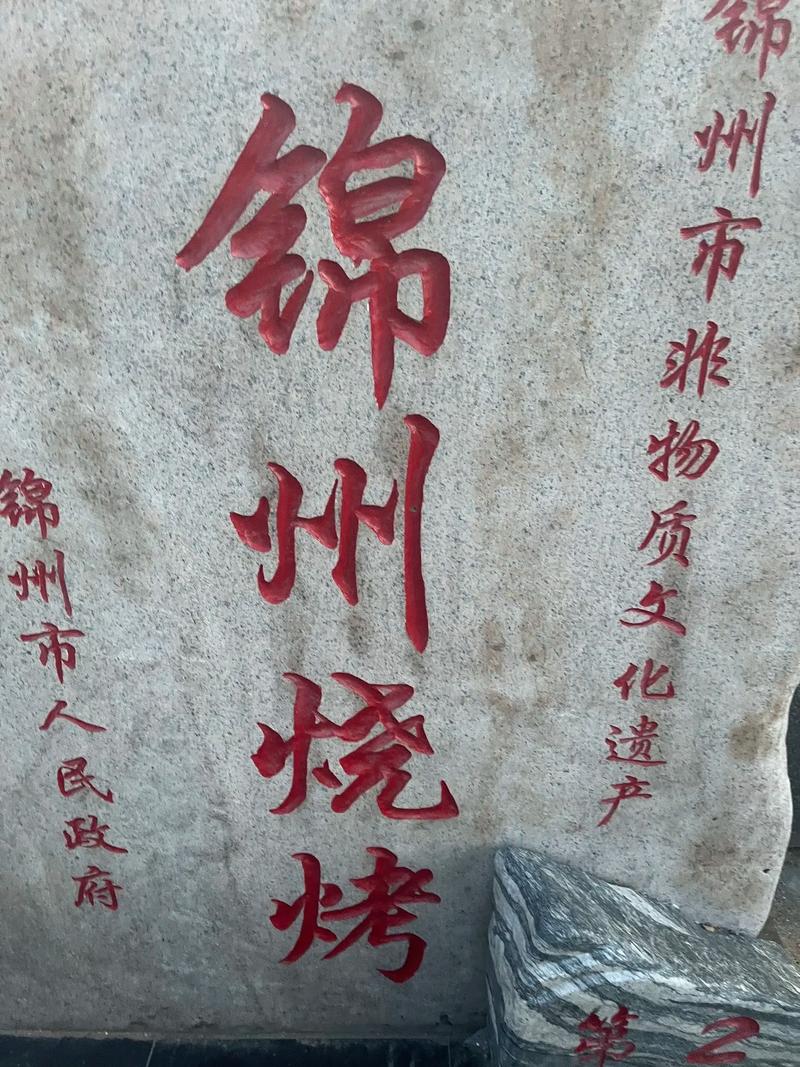 锦州市非物质文化遗产
锦州烧烤
锦州市人民政府
第2